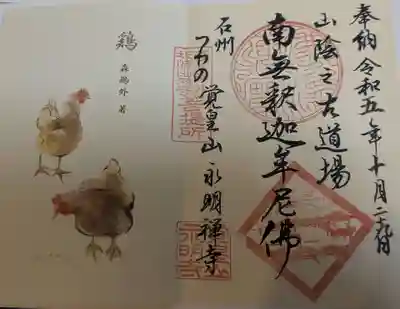 奉納 令和五年十月二十九日
山陰之古道場
南無釋迦牟尼佛
石州
つわの 覚皇山 永明禅寺
鶏
森鷗外 著